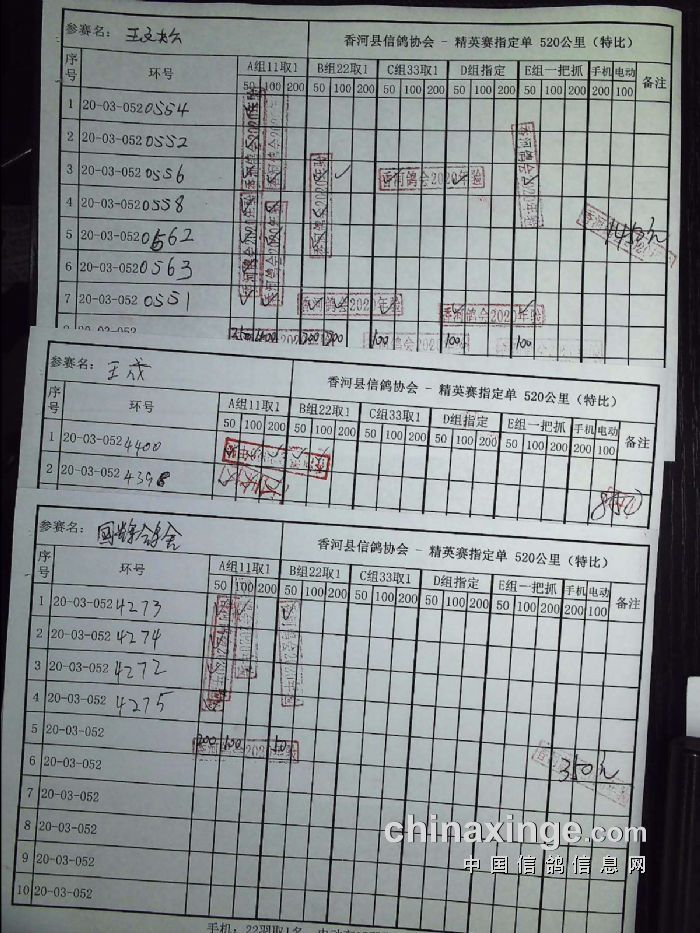 参赛名：
香河县信鸽协会 - 精英赛指定单 520公里（特比）
序号 环号 A组11取1 B组22取1 C组33取1 D组指定 E组一把抓 手机 电动 备注
50 100 200 50 100 200 50 100 200 50 100 200 50 100 200 200 100
1 20-03-052 0554
2 20-03-052 0552
3 20-03-052 0556
香河鸽会2020年验
4 20-03-052 0558
5 20-03-052 0562
6 20-03-052 0563
7 20-03-052 0551
香河鸽会2020年验 香河鸽会2020年验
200 200 100 100 100
参赛名：王成
香河县信鸽协会 - 精英赛指定单 520公里（特比）
序号 环号 A组11取1 B组22取1 C组33取1 D组指定 E组一把抓 手机 电动 备注
50 100 200 50 100 200 50 100 200 50 100 200 50 100 200 200 100
1 20-03-052 4400
2 20-03-052 4398
参赛名：
香河县信鸽协会 - 精英赛指定单 520公里（特比）
序号 环号 A组11取1 B组22取1 C组33取1 D组指定 E组一把抓 手机 电动 备注
50 100 200 50 100 200 50 100 200 50 100 200 50 100 200 200 100
1 20-03-052 4273
2 20-03-052 4274
3 20-03-052 4272
4 20-03-052 4275
5 20-03-052
200 100 50
350元
6 20-03-052
7 20-03-052
8 20-03-052
9 20-03-052
10 20-03-052
手机：22羽取1名
chinaxinge.com
中国信鸽信息网